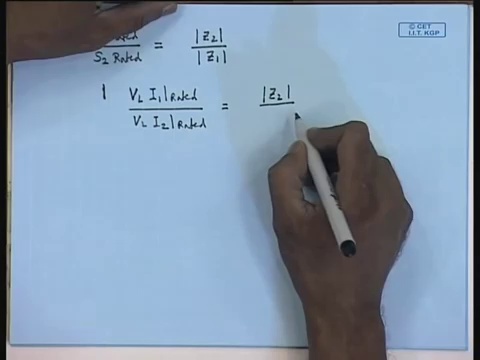 © CET
I.I.T. KGP
Rated / S2 Rated = |Z2| / |Z1|
V2 I1|Rated / V2 I2|Rated = |Z2|